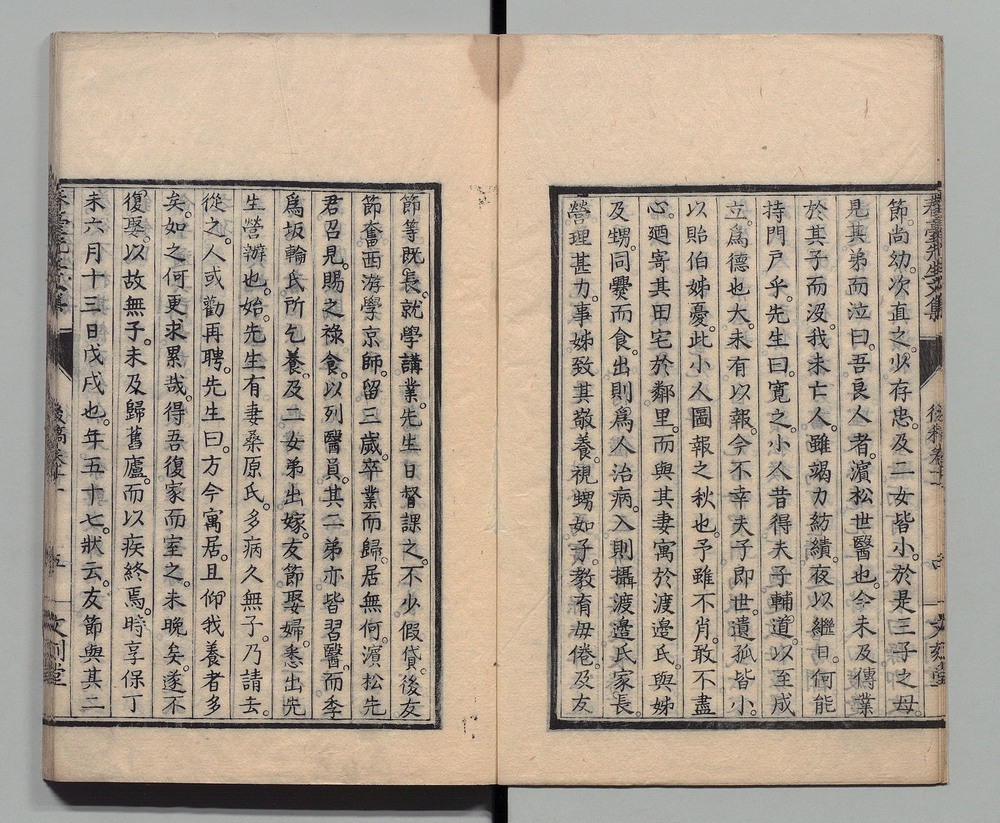 節尚幼。次直之。少存忠。及二女皆小。於是三子之母。
見其弟而泣曰。吾良人者。濵松世醫也。今未及傳業
於其子而沒。我未亡人。雖竭力紡績。夜以繼日。何能
持門戸乎。先生曰。寛之。小人昔得夫子輔道。以至成
立。爲德也大。未有以報。今不幸夫子即世。遺孤皆小。
以貽伯姊憂。此小人圖報之秋也。予雖不肖。敢不盡
心。廼寄其田宅於鄰里。而與其妻寓於渡邉氏。與姊
及甥。同爨而食。出則爲人治病。入則攝渡邉氏家長。
營理甚力。事姊致其敬養。視甥如子。教育毋倦。及友
節等既長。就學講業。先生日督課之。不少假貸。後友
節奮西游學京師。留三歲。卒業而歸。居無何。濵松先
君召見。賜之祿食。以列醫員。其二弟亦皆習醫。而李
爲坂輪氏所乞養。及二女弟出嫁。友節娶婦。悉出先
生營辦也。始先生有妻桑原氏。多病久無子。乃請去。
從之。人或勸再聘。先生曰。方今寓居。且仰我養者多
矣。如之何更求累哉。得吾復家而室之。未晩矣。遂不
復娶。以故無子。未及歸舊廬。而以疾終焉。時享保丁
未六月十三日戊戌也。年五十七。狀云。友節與其二